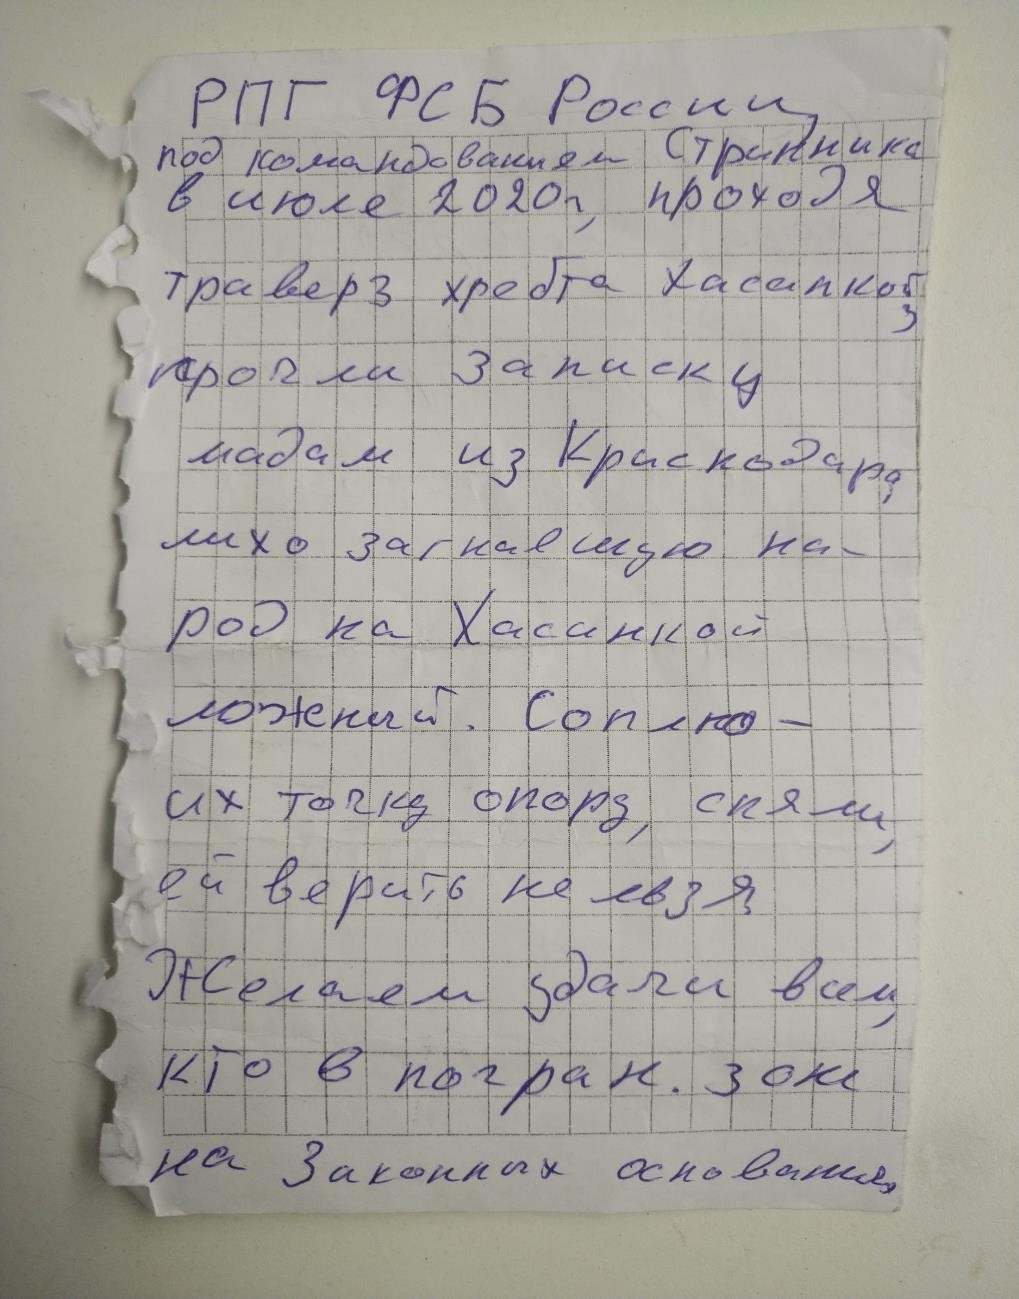 РПГ ФСБ России
под командованием Странника
в июле 2020г, проходя
траверз хребта Хасанкой
прочли записку
мадам из Краснодара,
лихо загнавшую на-
род на Хасанкой
ложный.
их точку опоры, сняли,
ей верить нельзя
Желаем удачи всем,
кто в погран. зоне
на Законных основаниях